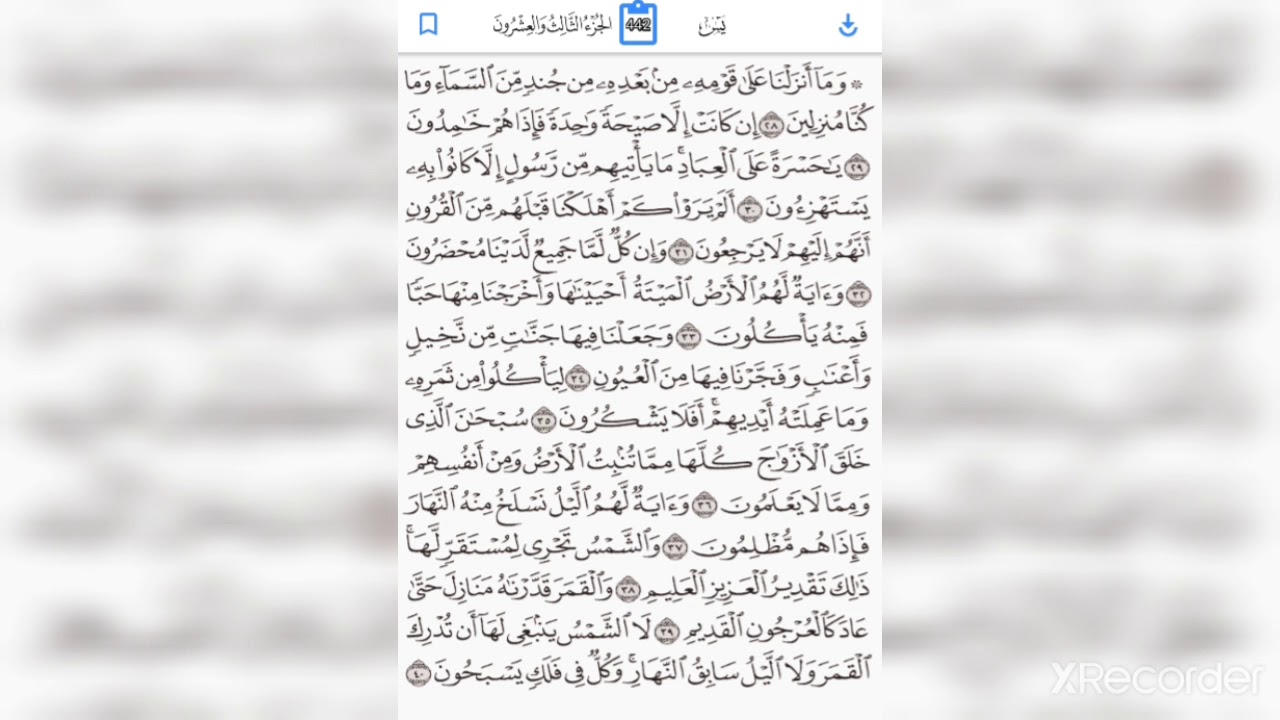 يسٓ 442 الجُزْءُ الثَّالِثُ وَالعِشْرُونَ
۞ وَمَآ أَنزَلْنَا عَلَىٰ قَوْمِهِۦ مِنۢ بَعْدِهِۦ مِن جُندٍ مِّنَ ٱلسَّمَآءِ وَمَا
كُنَّا مُنزِلِينَ ٢٨ إِن كَانَتْ إِلَّا صَيْحَةً وَٰحِدَةً فَإِذَا هُمْ خَـٰمِدُونَ
٢٩ يَـٰحَسْرَةً عَلَى ٱلْعِبَادِۚ مَا يَأْتِيهِم مِّن رَّسُولٍ إِلَّا كَانُوا۟ بِهِۦ
يَسْتَهْزِءُونَ ٣٠ أَلَمْ يَرَوْا۟ كَمْ أَهْلَكْنَا قَبْلَهُم مِّنَ ٱلْقُرُونِ
أَنَّهُمْ إِلَيْهِمْ لَا يَرْجِعُونَ ٣١ وَإِن كُلٌّ لَّمَّا جَمِيعٌ لَّدَيْنَا مُحْضَرُونَ
٣٢ وَءَايَةٌ لَّهُمُ ٱلْأَرْضُ ٱلْمَيْتَةُ أَحْيَيْنَـٰهَا وَأَخْرَجْنَا مِنْهَا حَبًّا
فَمِنْهُ يَأْكُلُونَ ٣٣ وَجَعَلْنَا فِيهَا جَنَّـٰتٍ مِّن نَّخِيلٍ
وَأَعْنَـٰبٍ وَفَجَّرْنَا فِيهَا مِنَ ٱلْعُيُونِ ٣٤ لِيَأْكُلُوا۟ مِن ثَمَرِهِۦ
وَمَا عَمِلَتْهُ أَيْدِيهِمْۚ أَفَلَا يَشْكُرُونَ ٣٥ سُبْحَـٰنَ ٱلَّذِى
خَلَقَ ٱلْأَزْوَٰجَ كُلَّهَا مِمَّا تُنۢبِتُ ٱلْأَرْضُ وَمِنْ أَنفُسِهِمْ
وَمِمَّا لَا يَعْلَمُونَ ٣٦ وَءَايَةٌ لَّهُمُ ٱلَّيْلُ نَسْلَخُ مِنْهُ ٱلنَّهَارَ
فَإِذَا هُم مُّظْلِمُونَ ٣٧ وَٱلشَّمْسُ تَجْرِى لِمُسْتَقَرٍّ لَّهَاۚ
ذَٰلِكَ تَقْدِيرُ ٱلْعَزِيزِ ٱلْعَلِيمِ ٣٨ وَٱلْقَمَرَ قَدَّرْنَـٰهُ مَنَازِلَ حَتَّىٰ
عَادَ كَٱلْعُرْجُونِ ٱلْقَدِيمِ ٣٩ لَا ٱلشَّمْسُ يَنۢبَغِى لَهَآ أَن تُدْرِكَ
ٱلْقَمَرَ وَلَا ٱلَّيْلُ سَابِقُ ٱلنَّهَارِۚ وَكُلٌّ فِى فَلَكٍ يَسْبَحُونَ ٤٠
XRecorder